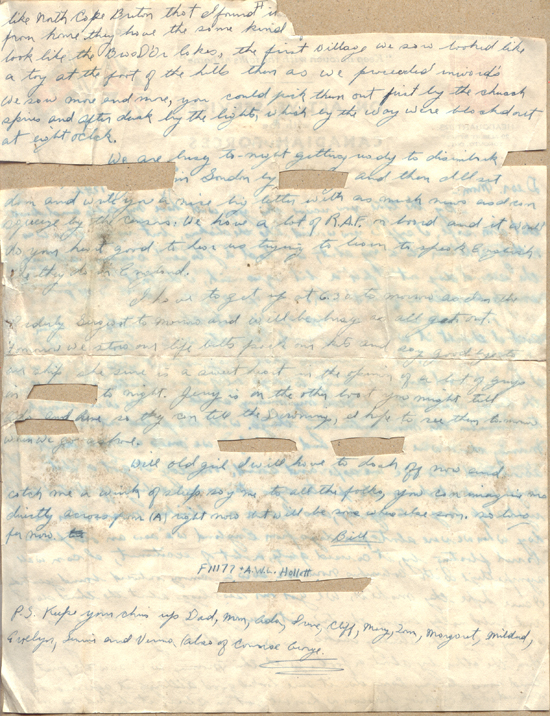 like North Cape Breton that I found it
from home, they have the same kind
look like the Bras D'Or lakes, the first village we saw looked like
a toy at the foot of the hills then as we proceeded inwards
we saw more and more, you could pick them out first by the church
spires and after dark by the lights, which by the way were blacked out
at eight oclock.
We are busy to-night getting ready to disembark
in London by and then I'll sit
down and write you a nice big letter with as much news as I can
squeeze by the censors. We have a lot of R.A.F. on board and it would
do your heart good to hear us trying to learn to speak English
as they do in England.
I have to get up at 6.30 to morrow as I'm the
Orderly Sergeant to morrow and will be busy as all get out.
we store our life belts pack our kits and say goodbye to
our ship she sure is a sweet heart in the opinion of a lot of guys
to night. Jerry is on the other boat you might tell
so they can tell the I hope to see them
when we go ashore.
Well old girl I will have to dash off now and
catch me a wink of sleep, say hi to all the folks, you can imagine me
directly across from (A) right now but will be some where else soon. so long
for now.
Bill
F1117? A.W.L. Hollett
P.S. Keep your chin up Dad, Mom, Ada, Irene, Cliff, Mary, Tom, Margaret, Mildred,
Evelyn, and Verna. (also of course George.